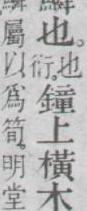 也。也衍。鐘上橫木
屬以爲筍。明堂